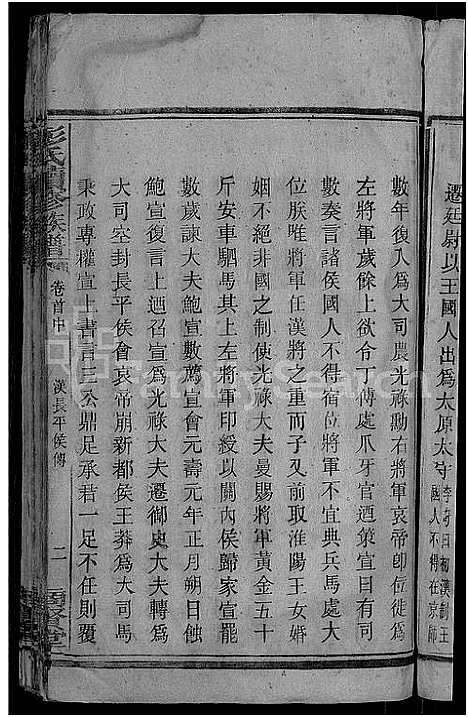 遷廷尉以王國人出爲太原太守李奇曰初漢制王國人不得在京師
數年復入爲大司農光祿勳右將軍哀帝卽位徙爲
左將軍歲餘上欲令丁傅處爪牙官迺策宣曰有司
數奏言諸侯國人不得宿衞將軍不宜典兵馬處大
位朕唯將軍任漢將之重而子又前取淮陽王女婚
姻不絕非國之制使光祿大夫曼賜將軍黃金五十
斤安車駟馬其上左將軍印綬以關內侯歸家宣罷
數歲諫大夫鮑宣數薦宣會元壽元年正月朔日蝕
鮑宣復言上迺召宣爲光祿大夫遷御史大夫轉爲
大司空封長平侯會哀帝崩新都侯王莽爲大司馬
秉政專權宣上書言三公鼎足承君一足不任則覆
彭氏續修族譜
卷首中
漢長平侯傳
二
FamilySearch